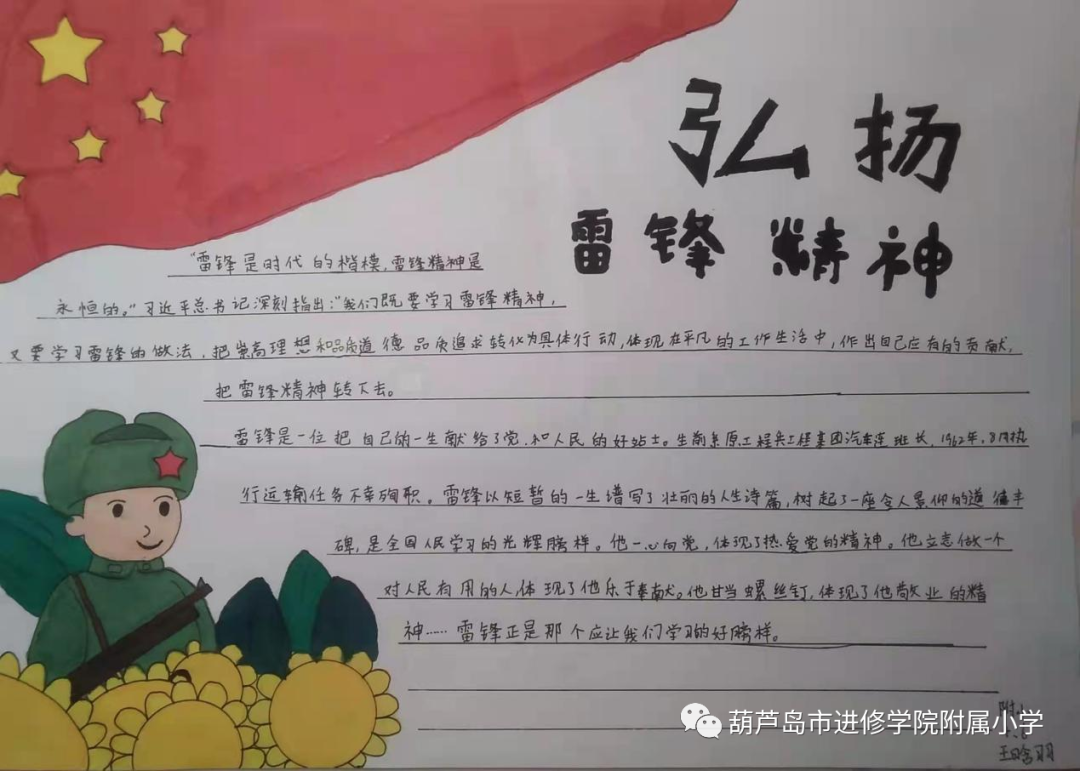 弘扬
雷锋精神
"雷锋是时代的楷模,雷锋精神是
永恒的。"习近平总书记深刻指出:"我们既要学习雷锋精神,
又要学习雷锋的做法,把崇高理想和品质道德品质追求转化为具体行动,体现在平凡的工作生活中,作出自己应有的贡献,
把雷锋精神转下去。
雷锋是一位把自己的一生献给了党,和人民的好站士。生前系原工程兵工程集团汽车连班长,1962年,8月执
行运输任务不幸殉职。雷锋以短暂的一生谱写了壮丽的人生诗篇,树起了一座令人景仰的道德丰
碑,是全国人民学习的光辉膀样。他一心向党,体现了热爱党的精神。他立志做一个
对人民有用的人体现了他乐于奉献。他甘当螺丝钉,体现了他敬业的精
神……雷锋正是那个应让我们学习的好膀样。
附小
王晗羽
葫芦岛市进修学院附属小学